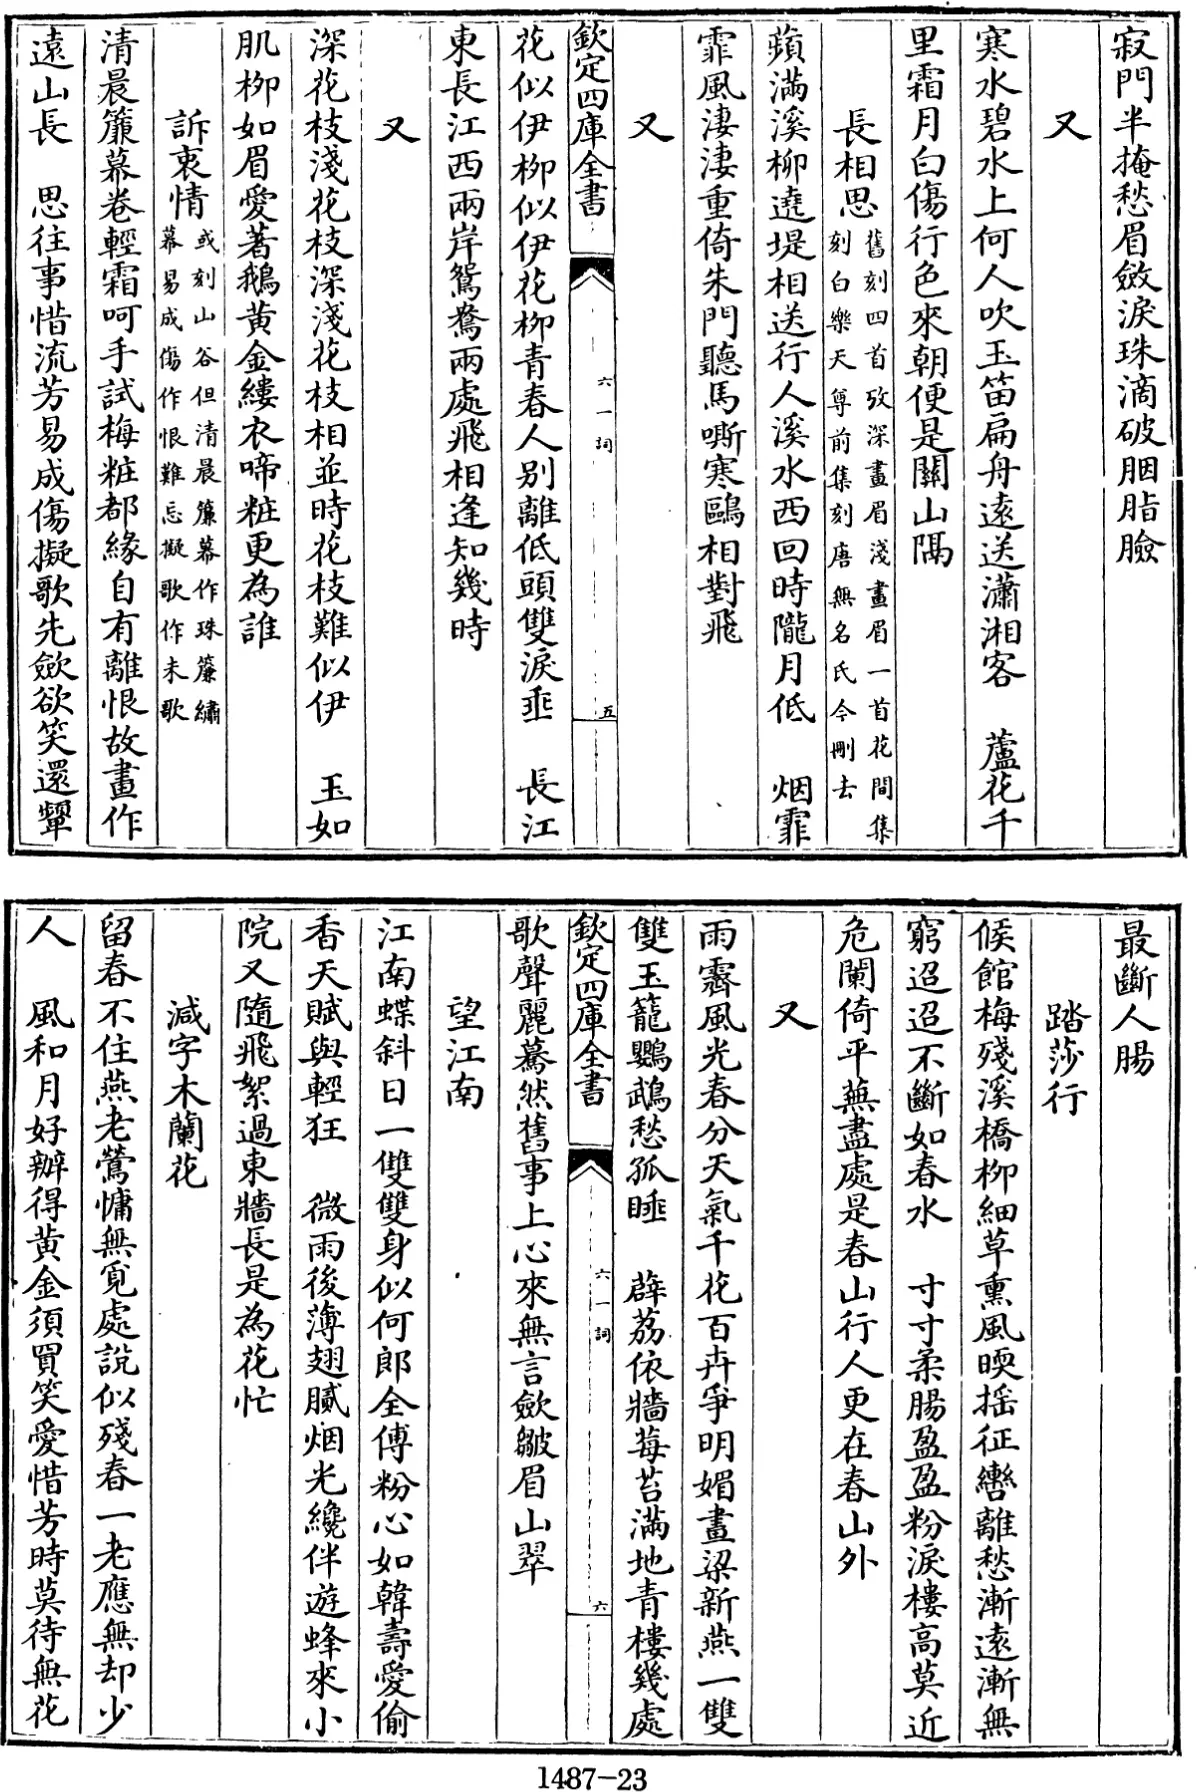 寂門半掩愁眉斂淚珠滴破胭脂臉
又
寒水碧水上何人吹玉笛扁舟遠送瀟湘客　蘆花千
里霜月白傷行色來朝便是關山隔
長相思舊刻四首攷深畫眉淺畫眉一首花間集
刻白樂天尊前集刻唐無名氏今刪去
蘋滿溪柳遶堤相送行人溪水西回時隴月低　烟霏
霏風淒淒重倚朱門聽馬嘶寒鷗相對飛
又
欽定四庫全書
六一詞
五
花似伊柳似伊花柳青春人別離低頭雙淚垂　長江
東長江西兩岸鴛鴦兩處飛相逢知幾時
又
深花枝淺花枝深淺花枝相並時花枝難似伊　玉如
肌柳如眉愛著鵝黃金縷衣啼粧更為誰
訴衷情或刻山谷但清晨簾幕作珠簾繡
幕易成傷作恨難忘擬歌作未歌
清晨簾幕卷輕霜呵手試梅粧都緣自有離恨故畫作
遠山長　思往事惜流芳易成傷擬歌先斂欲笑還顰
最斷人腸
踏莎行
候館梅殘溪橋柳細草熏風暖揺征轡離愁漸遠漸無
窮迢迢不斷如春水　寸寸柔腸盈盈粉淚樓高莫近
危闌倚平蕪盡處是春山行人更在春山外
又
雨霽風光春分天氣千花百卉爭明媚畫梁新燕一雙
雙玉籠鸚鵡愁孤睡　薜荔依牆莓苔滿地青樓幾處
欽定四庫全書
六一詞
六
歌聲麗驀然舊事上心來無言斂皺眉山翠
望江南
江南蝶斜日一雙雙身似何郎全傅粉心如韓壽愛偷
香天賦與輕狂　微雨後薄翅膩烟光纔伴遊蜂來小
院又隨飛絮過東牆長是為花忙
減字木蘭花
留春不住燕老鶯慵無覓處說似殘春一老應無却少
人　風和月好辦得黃金須買笑愛惜芳時莫待無花
1487-23